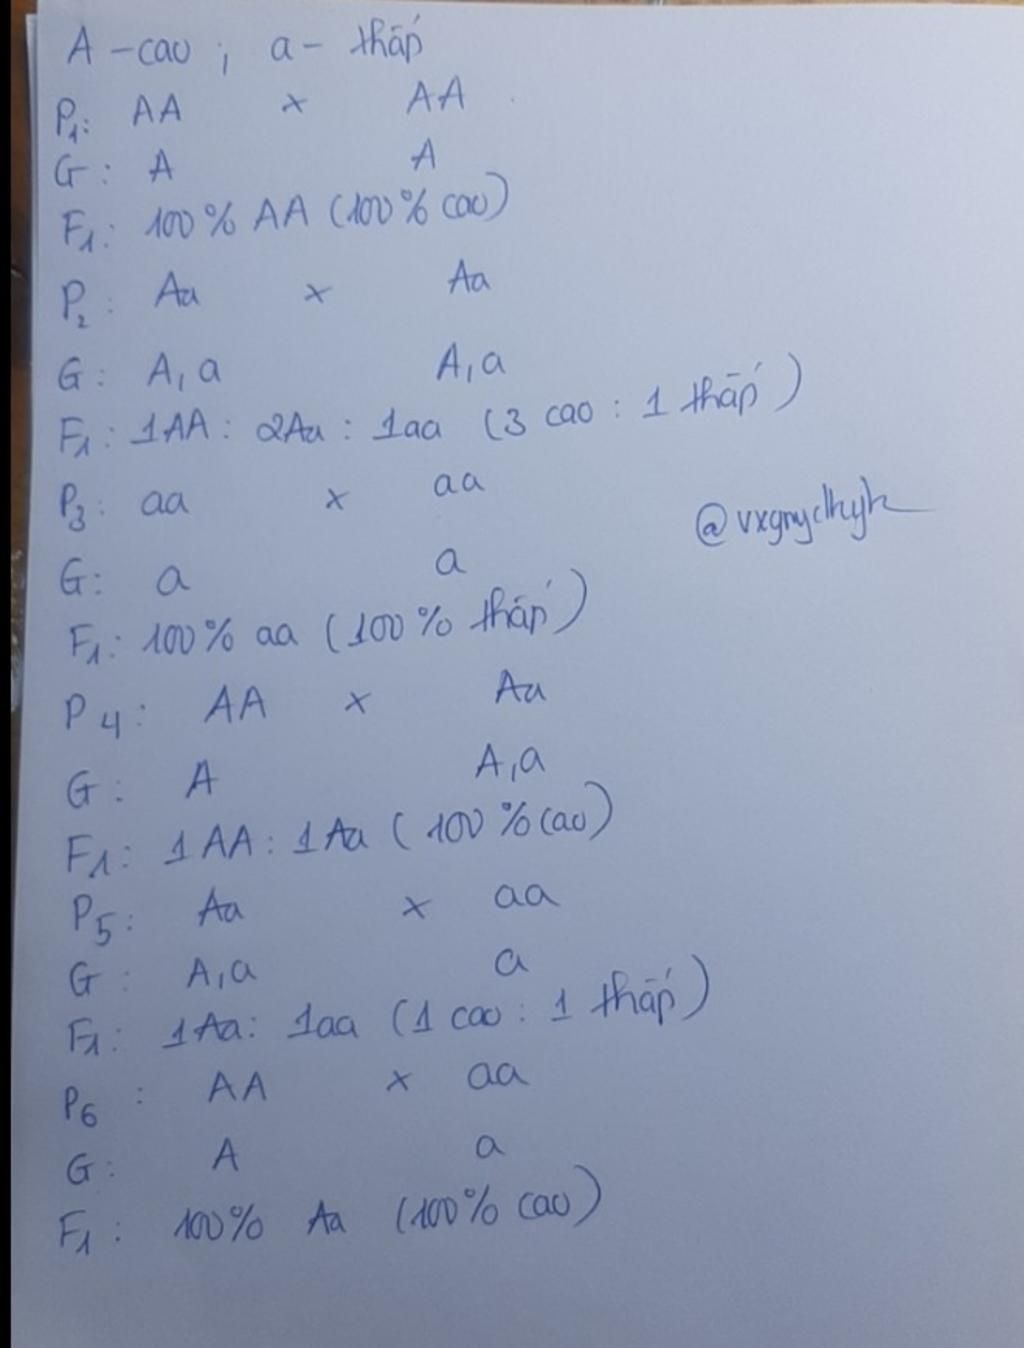 A - cao ; a - thấp
P1: AA x AA
G: A A
F1: 100% AA (100% cao)
P2: Aa x Aa
G: A, a A, a
F1: 1AA: 2Aa: 1aa (3 cao : 1 thấp)
P3: aa x aa
G: a a
F1: 100% aa (100% thấp)
P4: AA x Aa
G: A A, a
F1: 1AA: 1Aa (100% cao)
P5: Aa x aa
G: A, a a
F1: 1Aa: 1aa (1 cao : 1 thấp)
P6: AA x aa
G: A a
F1: 100% Aa (100% cao)